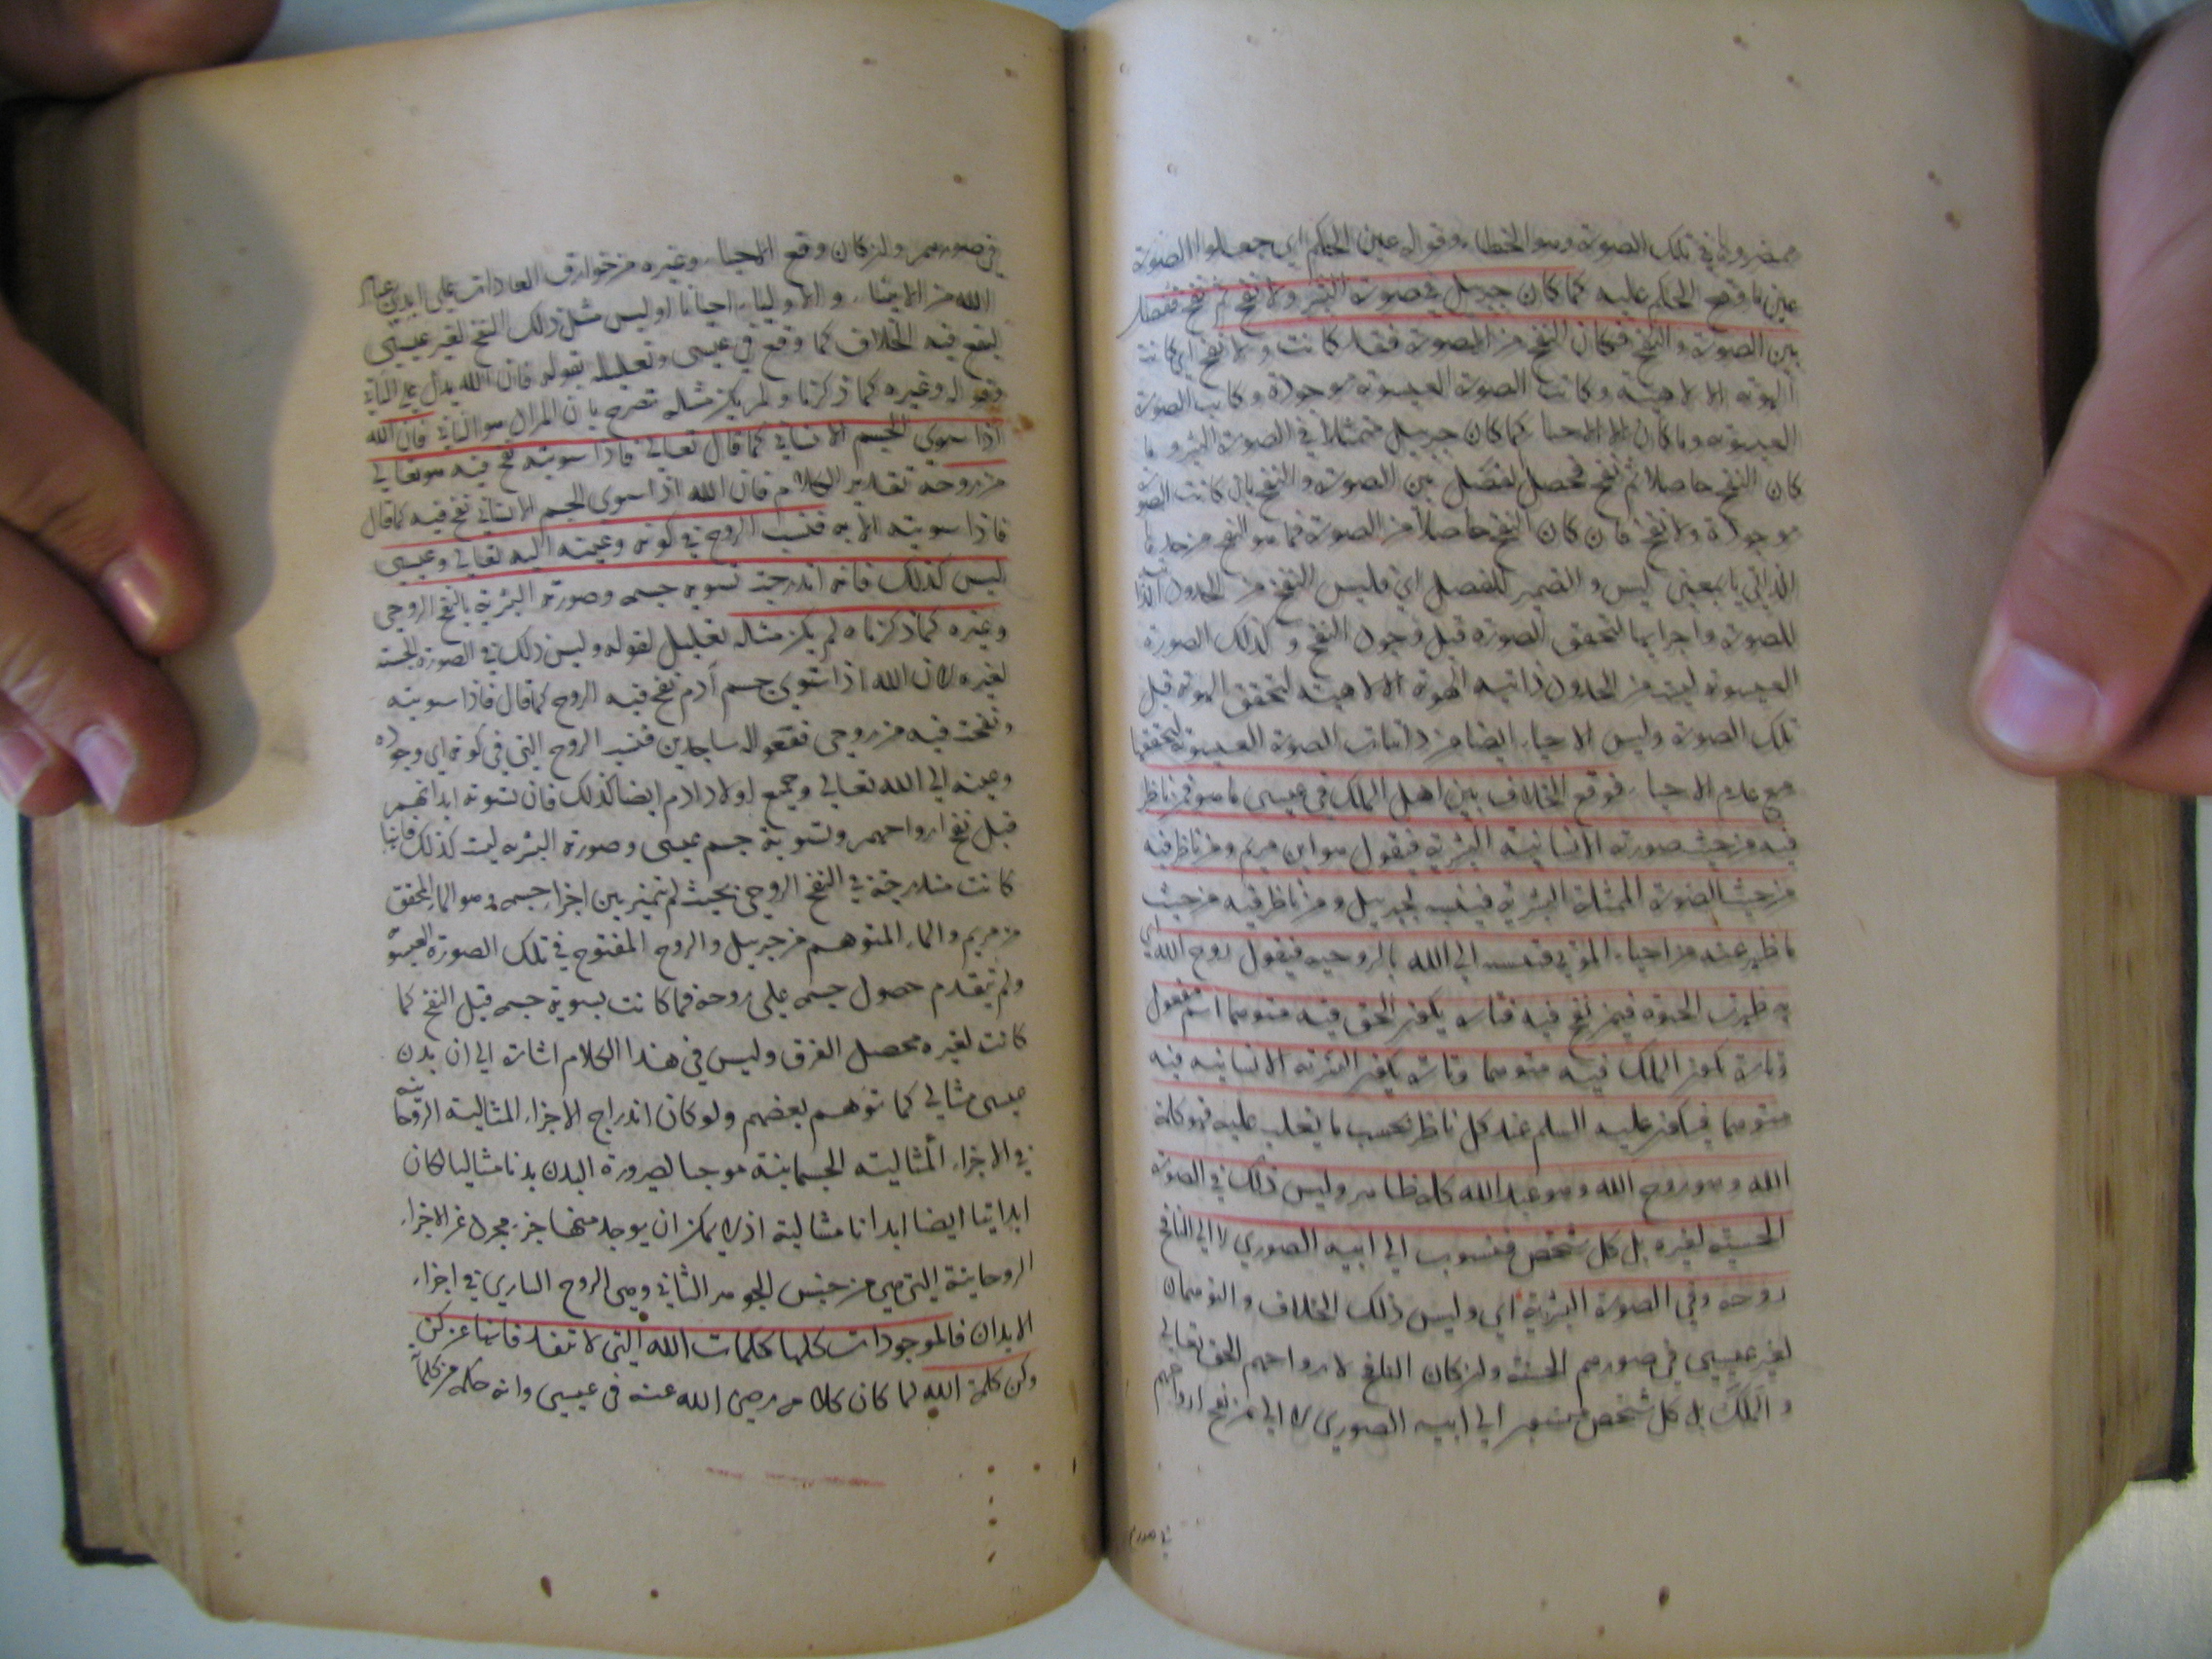 مضروبة في تلك الصورة وهو الخطاء وقوله عين الحكم اي جعلوا الصورة
عين ما وقع الحكم عليه كما كان جبريل في صورة البشر ولا نفخ ثم نفخ ففصل
بين الصورة والنفخ فكان النفخ من الصورة فقد كانت ولا نفخ اي كانت
الهوية الالاهية وكانت الصورة العيسوية موجودة وكانت الصورة
العيسوية وما كان الاحيا كما كان جبريل متمثلا في الصورة البشرية وما
كان النفخ حاصلا ثم نفخ فحصل الفصل بين الصورة والنفخ بان كانت الصورة
موجودة ولا نفخ فان كان النفخ حاصلا من الصورة فما هو النفخ من حدها
الذاتي ما بمعنى ليس والضمير للفصل اي فليس النفخ من الحدود الذاتية
للصورة واجزايها لتحقق الصورة قبل وجود النفخ وكذلك الصورة
العيسوية ليست من الحدود ذاتية الهوية الالاهية لتحقق الهوية قبل
تلك الصورة وليس الاحياء ايضا من ذاتيات الصورة العيسوية لتحققها
مع عدم الاحياء فوقع الخلاف بين اهل الملل في عيسى ما هو فمن ناظر
فيه من حيث صورته الانسانية البشرية فيقول هو ابن مريم ومن ناظر فيه
من حيث الصورة الممثلة البشرية فينسبه لجبريل ومن ناظر فيه من حيث
ما ظهر عنه من احياء الموتى فينسبه الى الله بالروحية فيقول روح الله اي
به ظهرت الحيوة فيمن نفخ فيه فتارة يكون الحق فيه متوهما اسم مفعول
وتارة يكون الملك فيه متوهما وتارة يكون البشرية الانسانية فيه
متوهما فيكون عليه السلم عند كل ناظر بحسب ما يغلب عليه فهو كلمة
الله وهو روح الله وهو عبد الله كله ظاهر وليس ذلك في الصورة
الحسية لغيره بل كل شخص منسوب الى ابيه الصوري لا الى النافخ
روحه وفي الصورة البشرية اي وليس ذلك الخلاف والتوهمان
لغير عيسى في صورهم الحسية ولن كان النافخ لارواحهم الحق تعالى
والملك بل كل شخص منسوب الى ابيه الصوري لا الى من نفخ ارواحهم
في صورهم
في صورهم ولن كان وقع الاحياء وغيره من خوارق العادات على ايدي عباد
الله من الانبياء والاولياء احيانا او ليس مثل ذلك النفخ لغير عيسى
ليقع فيه الخلاف كما وقع في عيسى وتعليله بقوله فان الله يدل على الثاني
وقوله وغيره كما ذكرنا ولم يكن مثله تصرح بان المراد هو الثاني فان الله
اذا سوى الجسم الانساني كما قال تعالى فاذا سويته نفخ فيه هو تعالى
من روحه تقدير الكلام فان الله اذا سوى الجسم الانساني نفخ فيه كما قال
فاذا سويته الاية فنسب الروح في كونه وعينه اليه تعالى وعيسى
ليس كذلك فانه اندرجت تسوية جسمه وصورته البشرية بالنفخ الروحي
وغيره كما ذكرناه لم يكن مثله تعليل لقوله وليس ذلك في الصورة الحسية
لغيره لان الله اذا سوى جسم آدم نفخ فيه الروح كما قال فاذا سويته
ونفخت فيه من روحي فقعوا له ساجدين فنسب الروح التي في كونه اي وجوده
وعينه الى الله تعالى وجميع اولاد ادم ايضا كذلك فان تسوية ابدانهم
قبل نفخ ارواحهم وتسوية جسم عيسى وصورته البشرية ليست كذلك فانها
كانت مندرجة في النفخ الروحي بحيث لم تتميز بين اجزاء جسمه هو الماء المحقق
من مريم والماء المتوهم من جبريل والروح المفتوح في تلك الصورة العيسوية
ولم يتقدم حصول جسمه على روحه فما كانت تسوية جسمه قبل النفخ كما
كانت لغيره محصل الفرق وليس في هذا الكلام اشارة الى ان بدن
عيسى مثالي كما توهم بعضهم ولو كان اندراج الاجزاء المثالية الروحانية
في الاجزاء المثالية الجسمانية موجبا لصيرورة البدن بدنا مثاليا لكان
ابداننا ايضا ابدانا مثالية اذ لا يمكن ان يوجد منها جزء مجرد عن الاجزاء
الروحانية التي هي من جنس الجوهر الثاني وهي الروح الساري في اجزاء
الابدان فالموجودات كلها كلمات الله التي لا تنفد فانها عن كن
وكن كلمة الله لما كان كلامه رضي الله عنه في عيسى وانه كلمة من كلمات